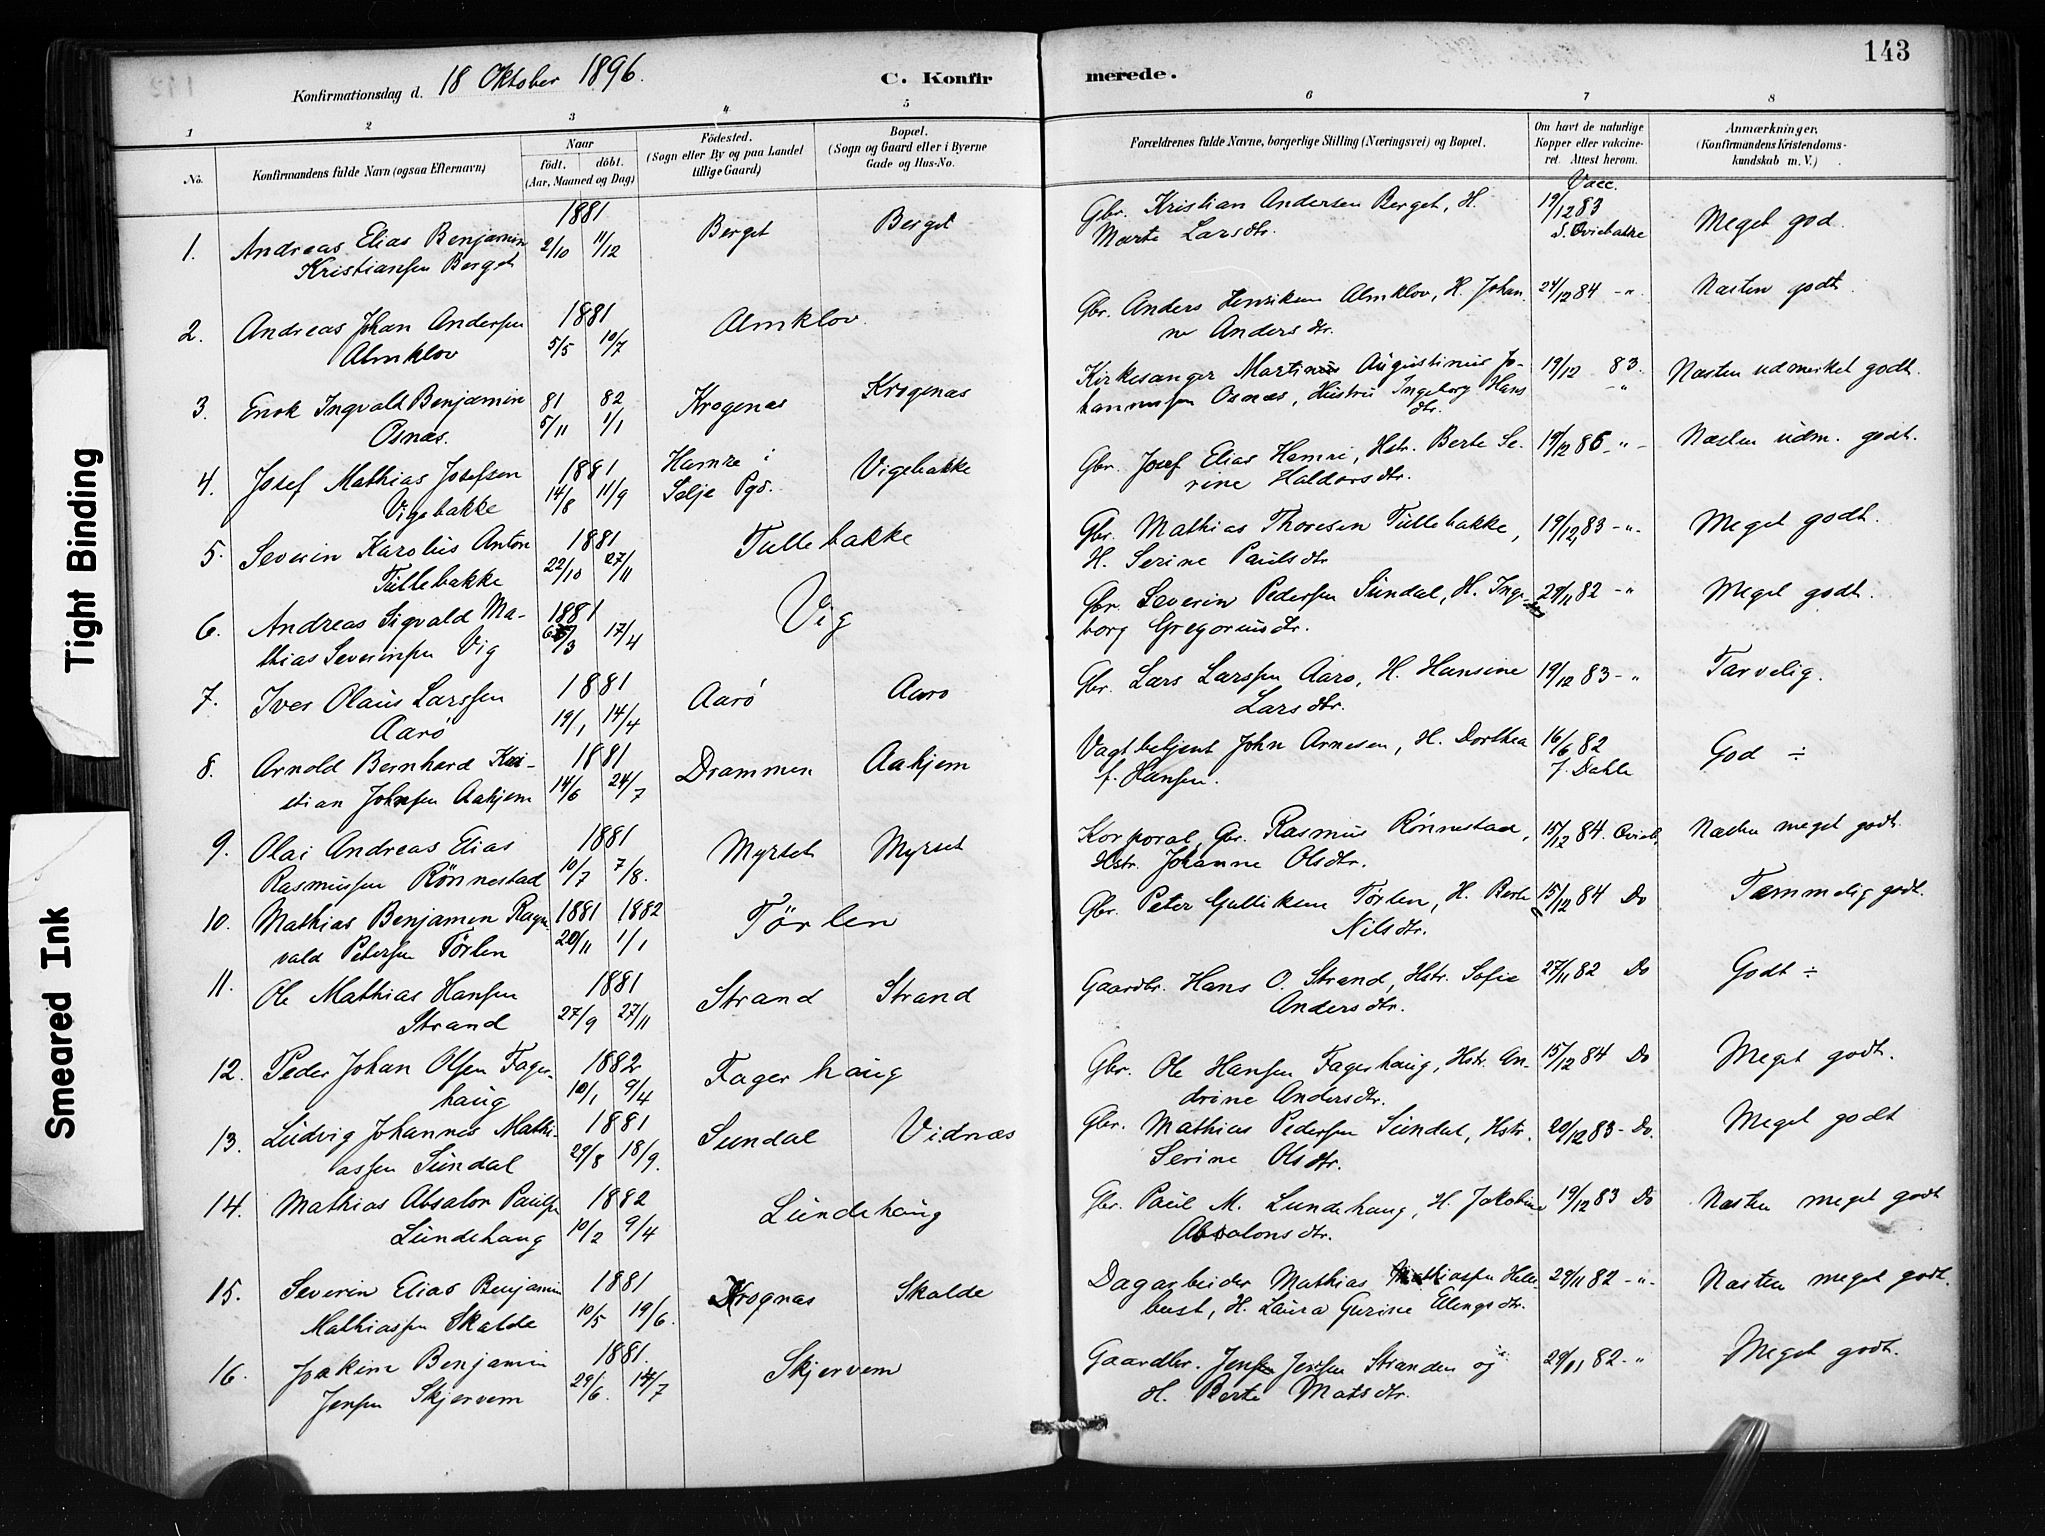 Tight Binding
Smeared Ink
143
Konfirmationsdag d. 18 Oktober 1896.
C. Konfirmerede.
1 2 3 4 5 6 7 8
No.
Konfirmandens fulde Navn (ogsaa Efternavn)
Naar
födt. döbt.
(Aar, Maaned og Dag)
Födested.
(Sogn eller By og paa Landet
tillige Gaard)
Bopæl.
(Sogn og Gaard eller i Byerne
Gade og Hus-No.
Forældrenes fulde Navne, borgerlige Stilling (Næringsvei) og Bopæl.
Om havt de naturlige
Kopper eller vakcine-
ret. Attest herom.
Anmærkninger.
(Konfirmandens Kristendoms-
kundskab m. V.)
Vacc.
1. Andreas Elias Benjamin 1881 2/10 11/12 Berget Berget Gbr. Kristian Andersen Berget, H. 19/12 83 Meget god.
Kristiansen Berget Marte Larsdtr.
2. Andreas Johan Andersen 1881 5/5 10/7 Almklov. Gbr. Anders Henriksen Almklov, H. Johan 24/12 84 -„- Næsten godt.
Almklov ne Andersdtr.
3. Enok Ingvald Benjamin 81 5/11 82 1/1 Krogenæs Krogenæs Kirkesanger Martinus Augustinus Jo- 19/12 83. -„ Næsten udmerket godt.
Osnæs. hannessen Osnæs, Hustru Ingeborg Hans
dtr.
4. Josef Mathias Josefsen 1881 14/8 11/9 Hamre i Vigebakke Gbr. Josef Elias Hamre, Hstr. Berte Se- 19/12 85 -„- Næsten udm. godt.
Vigebakke Selje Pgd. rine Haldorsdtr.
5. Severin Karolus Anton 1881 22/10 27/11 Tullebakke Gbr. Mathias Thoresen Tullebakke, 19/12 83 -„- Meget godt.
Tullebakke H. Serine Paulsdtr
6. Andreas Sigvald Ma- 1881 6/3 17/4 Vig Gbr. Severin Pedersen Sundal, H. Inge- 29/11 82 -„ Meget godt.
thias Severinsen Vig borg Gregoriusdtr.
7. Iver Olaus Larssen 1881 19/1 14/4 Aarö Aaro Gbr. Lars Larssen Aaro, H. Hansine 19/12 83 -„ Tarvelig.
Aarö Larsdtr.
8. Arnold Bernhard Kri- 1881 14/6 24/7 Drammen Aahjem Vagtbetjent John Arnesen, H. Dorthea 16/6 82 God ÷
stian Johnsen Aahjem f. Hansen. J. Dahle
9. Olai Andreas Elias 1881 10/7 7/8. Myrset Myrset Korporal, Gbr. Rasmus Rönnestad, 15/12 84. Næsten meget godt.
Rasmussen Rönnestad Hstr. Johanne Olsdtr.
10. Mathias Benjamin Ragn 1881 20/11 1882 1/1 Törlen Gbr. Peter Gulliksen Törlen, H. Berte 15/12 84 Do Temmelig godt.
vald Petersen Törlen Nilsdtr.
11. Ole Mathias Hansen 1881 27/9 27/11 Strand Strand Gaardbr. Hans O. Strand, Hstr. Sofie 27/11 82 Do Godt ÷
Strand Andersdtr.
12. Peder Johan Olsen Fager- 1882 10/1 9/4 Fagerhaug Gbr. Ole Hansen Fagerhaug, Hstr. An- 15/12 84 Do Meget godt.
haug drine Andersdtr.
13. Ludvig Johannes Mathi- 1881 29/8 18/9. Sundal Vidnæs Gbr. Mathias Pedersen Sundal, Hstr. 20/12 83 - Do. Meget godt
assen Sundal Serine Olsdtr.
14. Mathias Absalon Paulsen 1882 10/2 9/4 Lundehaug Gbr. Paul M. Lundehaug, H. Jakobine 19/12 83 Do Næsten meget godt
Lundehaug Absalonsdtr.
15. Severin Elias Benjamin 1881 10/5 19/6. Krognæs Skalde Dagarbeider Mathias Mathiassen Helle- 29/11 82 -„- Næsten meget godt.
Mathiassen Skalde bust, H. Laura Gurine Ellingsdtr.
16. Joakim Benjamin 1881 29/6. 14/7 Skjervem Gaardbr. Jens Jensen Stranden og 29/11 82 -„ Meget godt.
Jensen Skjervem H. Berte Matsdtr.